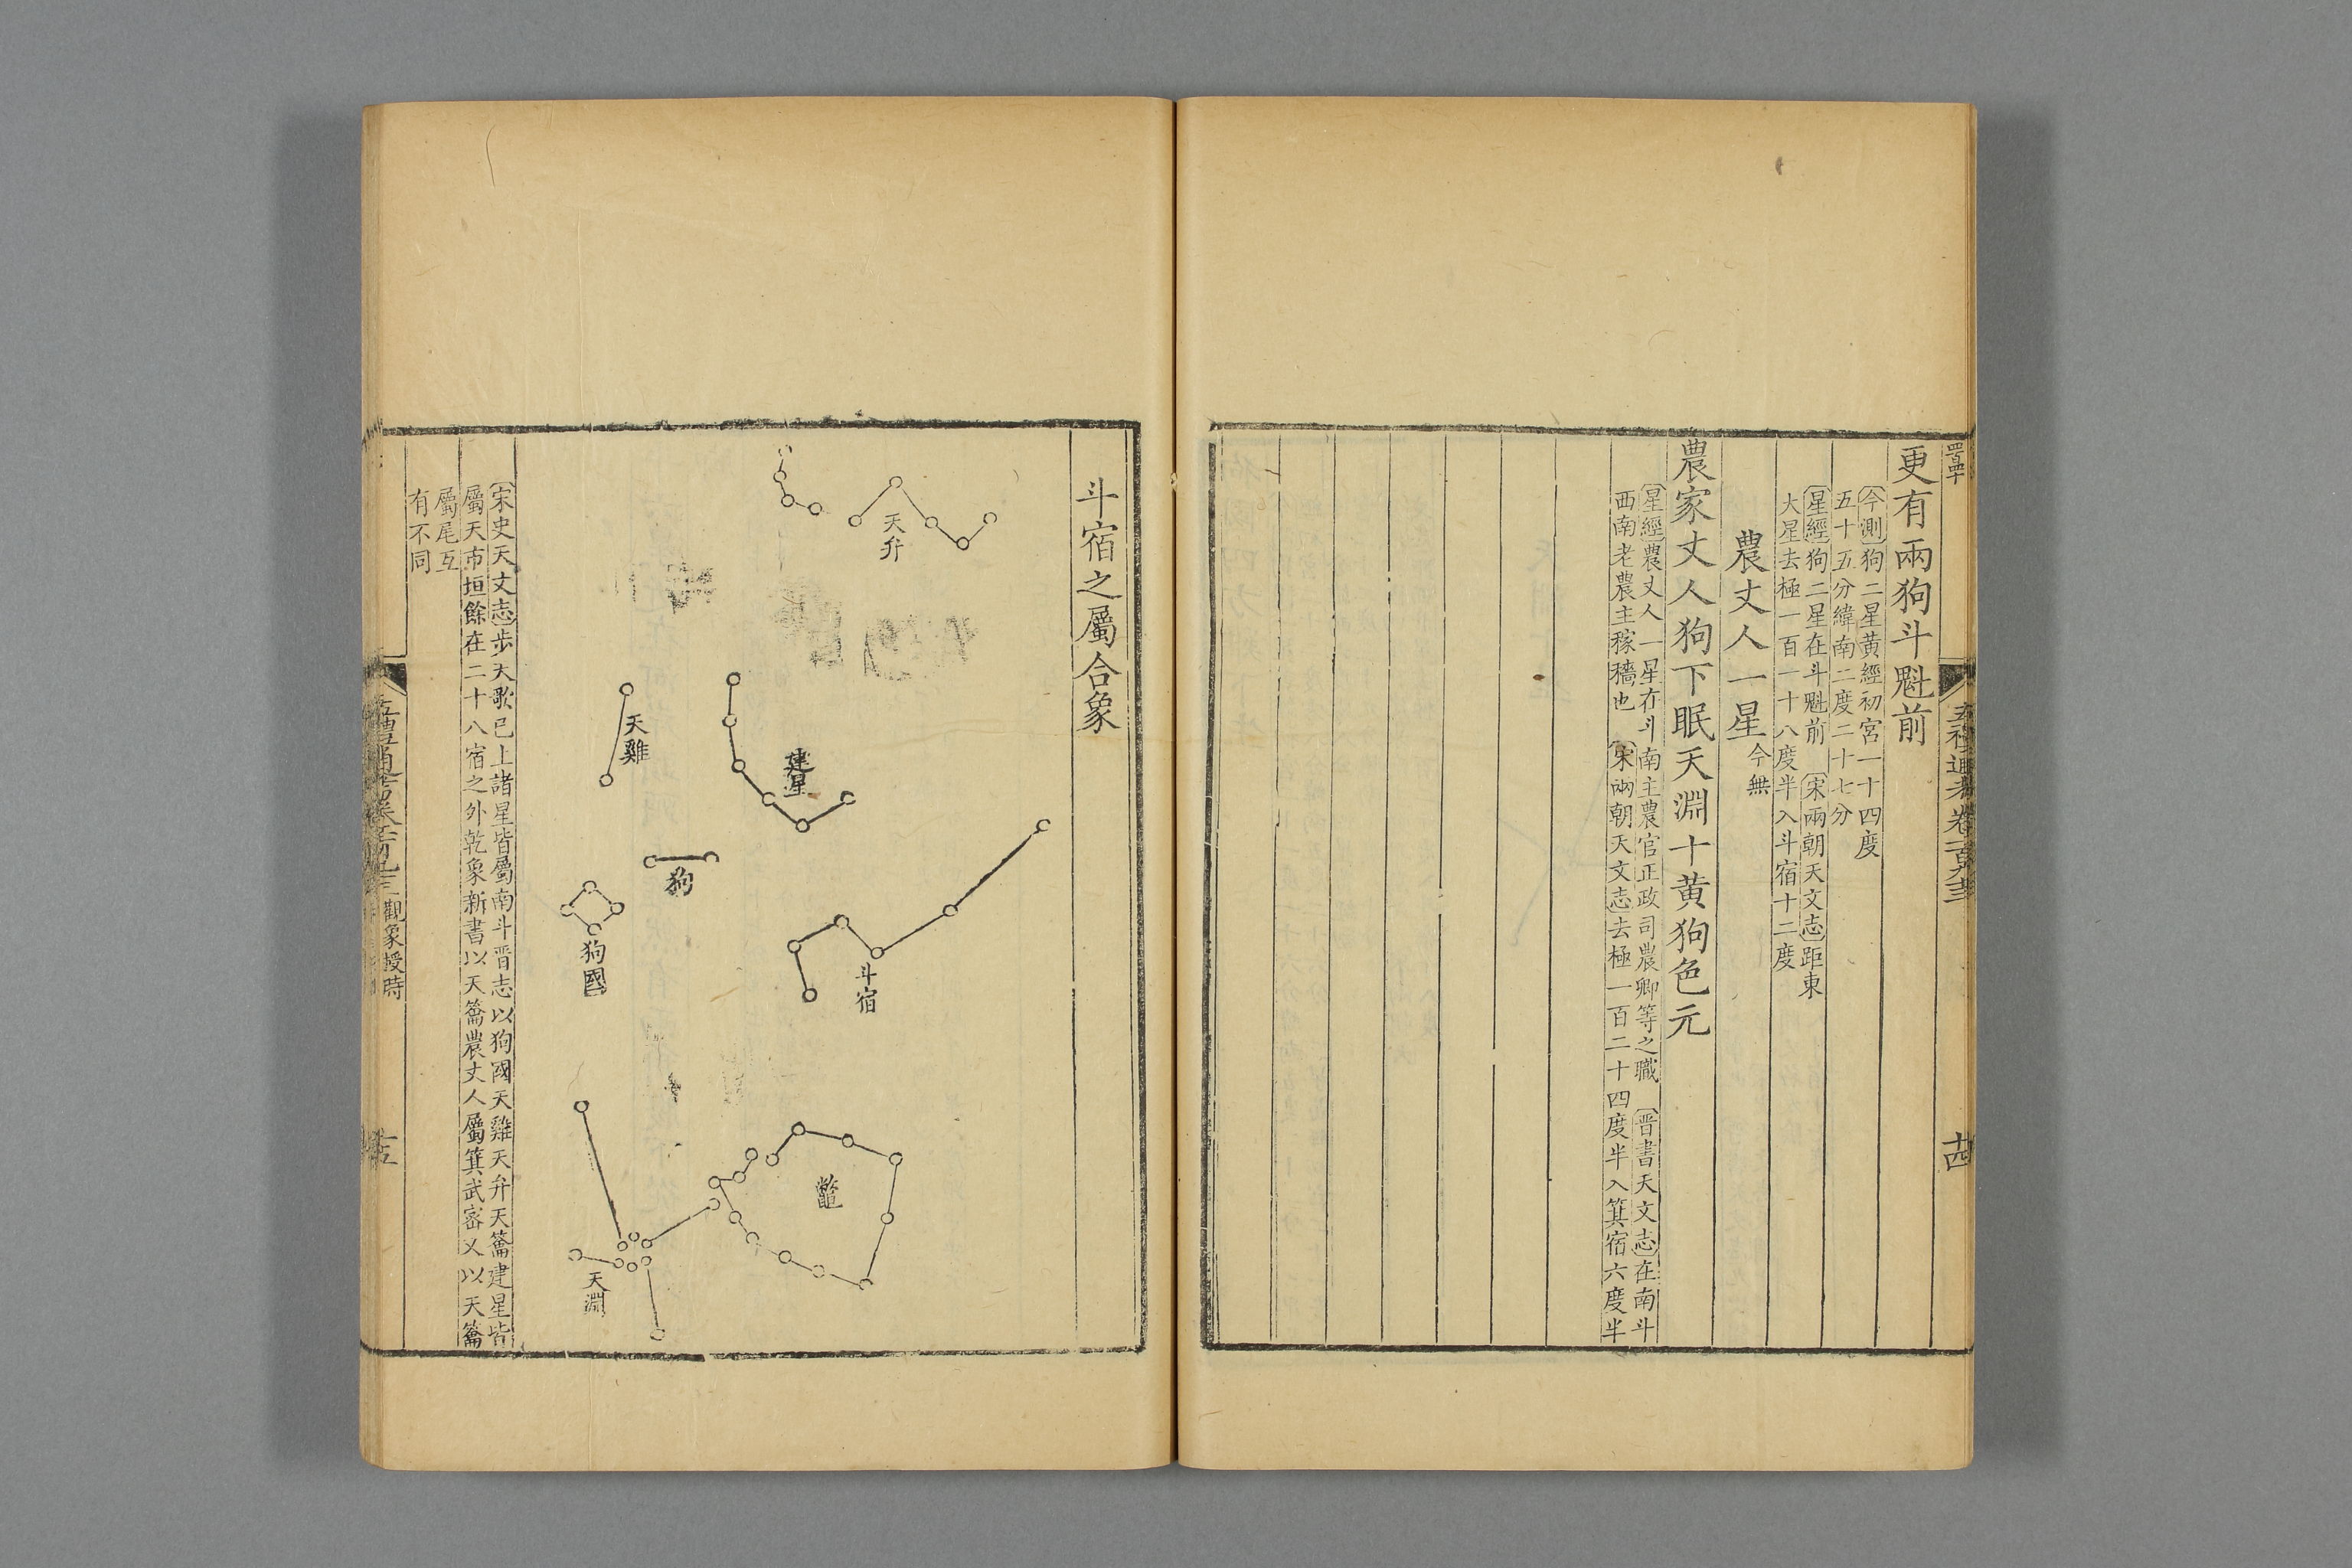 更有兩狗斗魁前
〔今測〕狗二星黃經初宮一十四度
五十五分緯南二度二十七分
〔星經〕狗二星在斗魁前 〔宋兩朝天文志〕距東
大星去極一百一十八度半入斗宿十二度
農丈人一星今無
農家丈人狗下眠天淵十黄狗色元
〔星經〕農丈人一星在斗南主農官正政司農卿等之職 〔晋書天文志〕在南斗
西南老農主稼穡也 〔宋兩朝天文志〕去極一百二十四度半入箕宿六度半
十四
斗宿之屬合象
天弁
建星
天雞
狗
狗國
斗宿
鼈
天淵
〔宋史天文志〕步天歌已上諸星皆屬南斗晋志以狗國天雞天弁天籥建星皆
屬天市垣餘在二十八宿之外乾象新書以天籥農丈人屬箕武密又以天籥
屬尾互
有不同
觀象授時